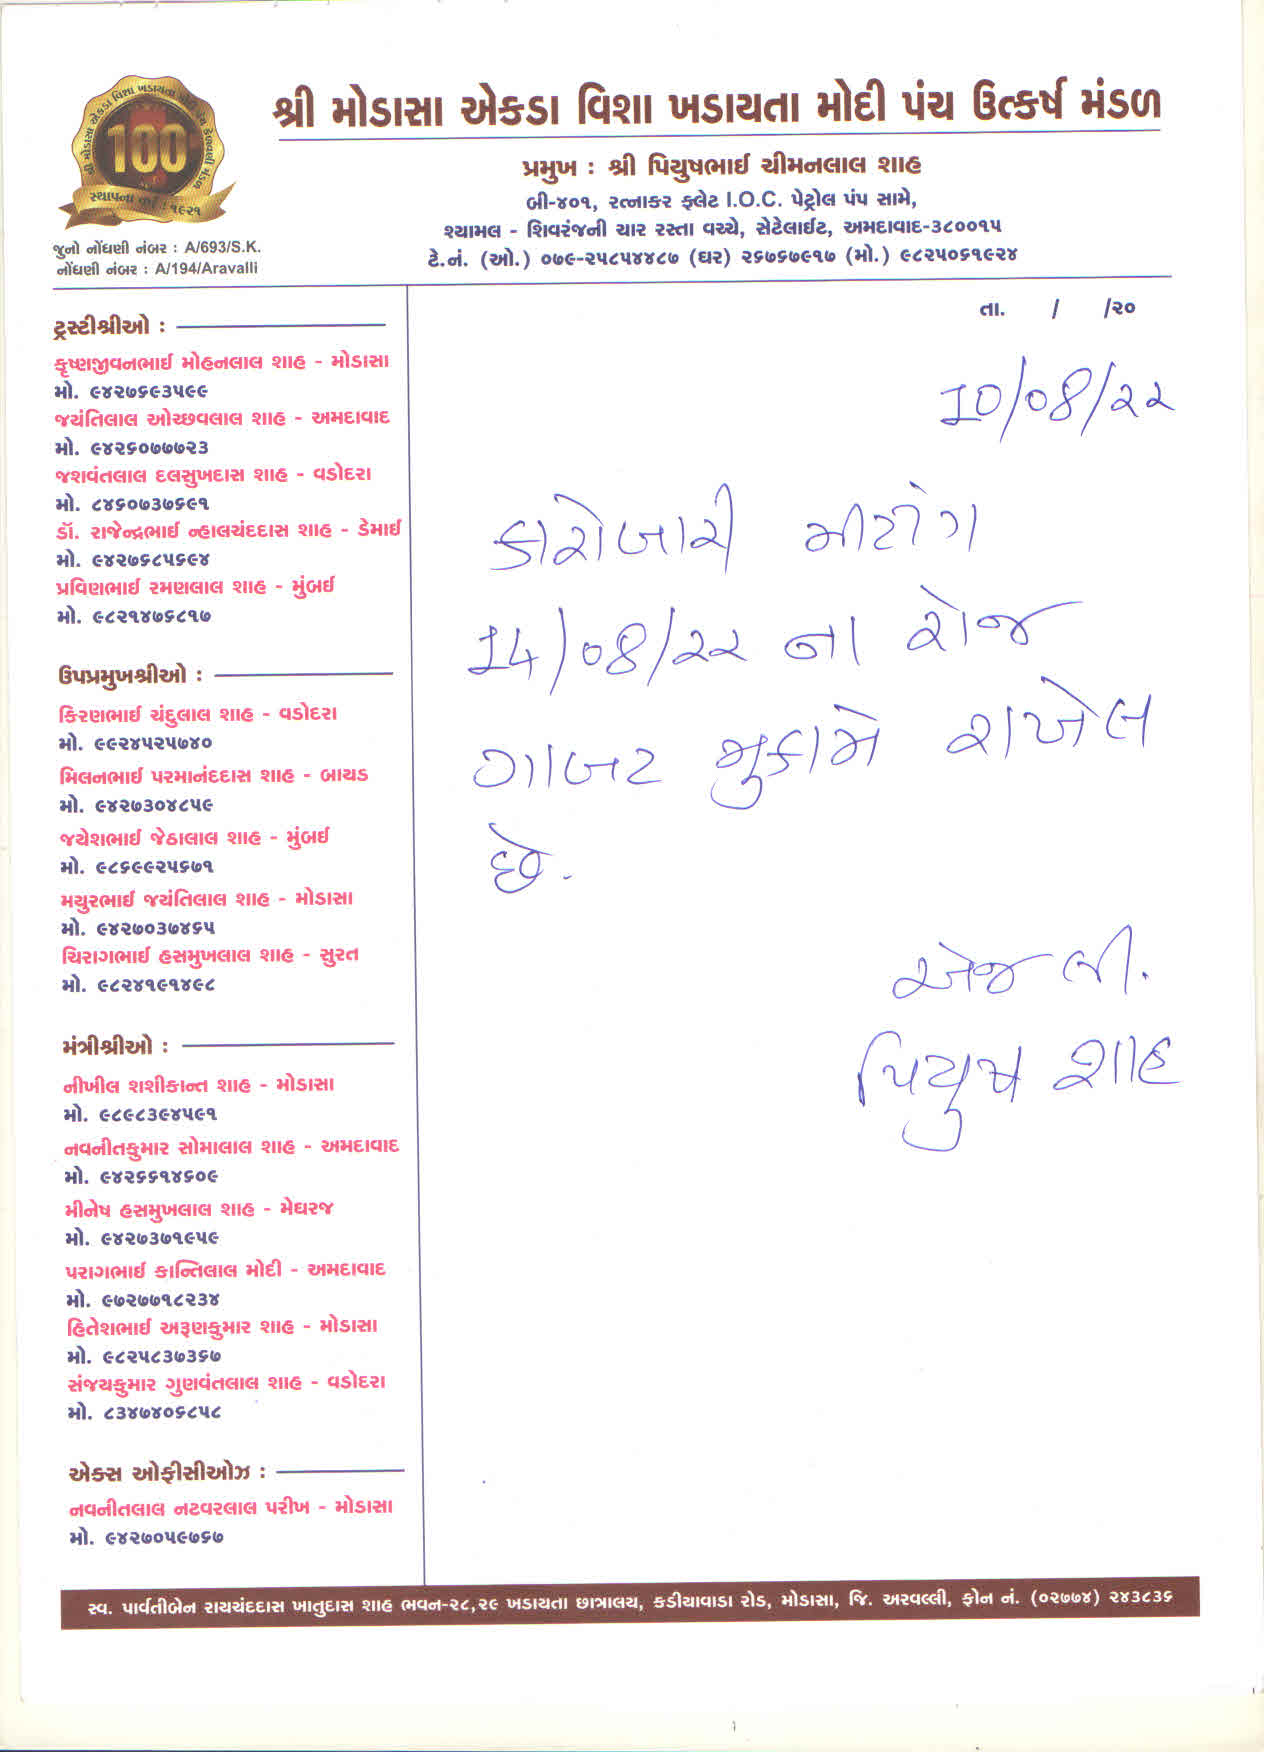 શ્રી મોડાસા એકડા વિશા ખડાયતા મોદી પંચ ઉત્કર્ષ મંડળ
પ્રમુખ : શ્રી પિયુષભાઈ ચીમનલાલ શાહ
બી-૪૦૧, રત્નાકર ફ્લેટ I.O.C. પેટ્રોલ પંપ સામે,
શ્યામલ - શિવરંજની ચાર રસ્તા વચ્ચે, સેટેલાઈટ, અમદાવાદ-૩૮૦૦૧૫
ટે.નં. (ઓ.) ૦૭૯-૨૫૮૫૪૪૮૭ (ઘર) ૨૬૭૬૭૯૧૭ (મો.) ૯૮૨૫૦૬૧૯૨૪
100
સ્થાપના વર્ષ : ૧૯૨૧
જુનો નોંધણી નંબર : A/693/S.K.
નોંધણી નંબર : A/194/Aravalli
ટ્રસ્ટીશ્રીઓ :
કૃષ્ણજીવનભાઈ મોહનલાલ શાહ - મોડાસા
મો. ૯૪૨૭૬૯૩૫૯૯
જયંતિલાલ ઓચ્છવલાલ શાહ - અમદાવાદ
મો. ૯૪૨૬૦૭૭૭૨૩
જશવંતલાલ દલસુખદાસ શાહ - વડોદરા
મો. ૮૪૬૦૭૩૭૬૯૧
ડૉ. રાજેન્દ્રભાઈ ન્હાલચંદદાસ શાહ - ડેમાઈ
મો. ૯૪૨૭૬૮૫૬૯૪
પ્રવિણભાઈ રમણલાલ શાહ - મુંબઈ
મો. ૯૮૨૧૪૭૬૮૧૭
ઉપપ્રમુખશ્રીઓ :
કિરણભાઈ ચંદુલાલ શાહ - વડોદરા
મો. ૯૯૨૪૫૨૫૭૪૦
મિલનભાઈ પરમાનંદદાસ શાહ - બાયડ
મો. ૯૪૨૭૩૦૪૮૫૯
જયેશભાઈ જેઠાલાલ શાહ - મુંબઈ
મો. ૯૮૬૯૯૨૫૬૭૧
મયુરભાઈ જયંતિલાલ શાહ - મોડાસા
મો. ૯૪૨૭૦૩૭૪૬૫
ચિરાગભાઈ હસમુખલાલ શાહ - સુરત
મો. ૯૮૨૪૧૯૧૪૯૮
મંત્રીશ્રીઓ :
નીખીલ શશીકાન્ત શાહ - મોડાસા
મો. ૯૮૯૮૩૯૪૫૯૧
નવનીતકુમાર સોમાલાલ શાહ - અમદાવાદ
મો. ૯૪૨૬૬૧૪૬૦૯
મીનેષ હસમુખલાલ શાહ - મેઘરજ
મો. ૯૪૨૭૩૭૧૯૫૯
પરાગભાઈ કાન્તિલાલ મોદી - અમદાવાદ
મો. ૯૭૨૭૭૧૮૨૩૪
હિતેશભાઈ અરૂણકુમાર શાહ - મોડાસા
મો. ૯૮૨૫૮૩૭૩૬૭
સંજયકુમાર ગુણવંતલાલ શાહ - વડોદરા
મો. ૮૩૪૭૪૦૬૮૫૮
એક્સ ઓફીસીઓઝ :
નવનીતલાલ નટવરલાલ પરીખ - મોડાસા
મો. ૯૪૨૭૦૫૯૭૬૭
તા. / /૨૦
10/08/૨૨
કારોબારી મીટીંગ
14/08/૨૨ ના રોજ
ગાબટ મુકામે રાખેલ
છે.
એજ લી.
પિયુષ શાહ
સ્વ. પાર્વતીબેન રાયચંદદાસ ખાતુદાસ શાહ ભવન-૨૮,૨૯ ખડાયતા છાત્રાલય, કડીયાવાડા રોડ, મોડાસા, જિ. અરવલ્લી, ફોન નં. (૦૨૭૭૪) ૨૪૩૮૩૬